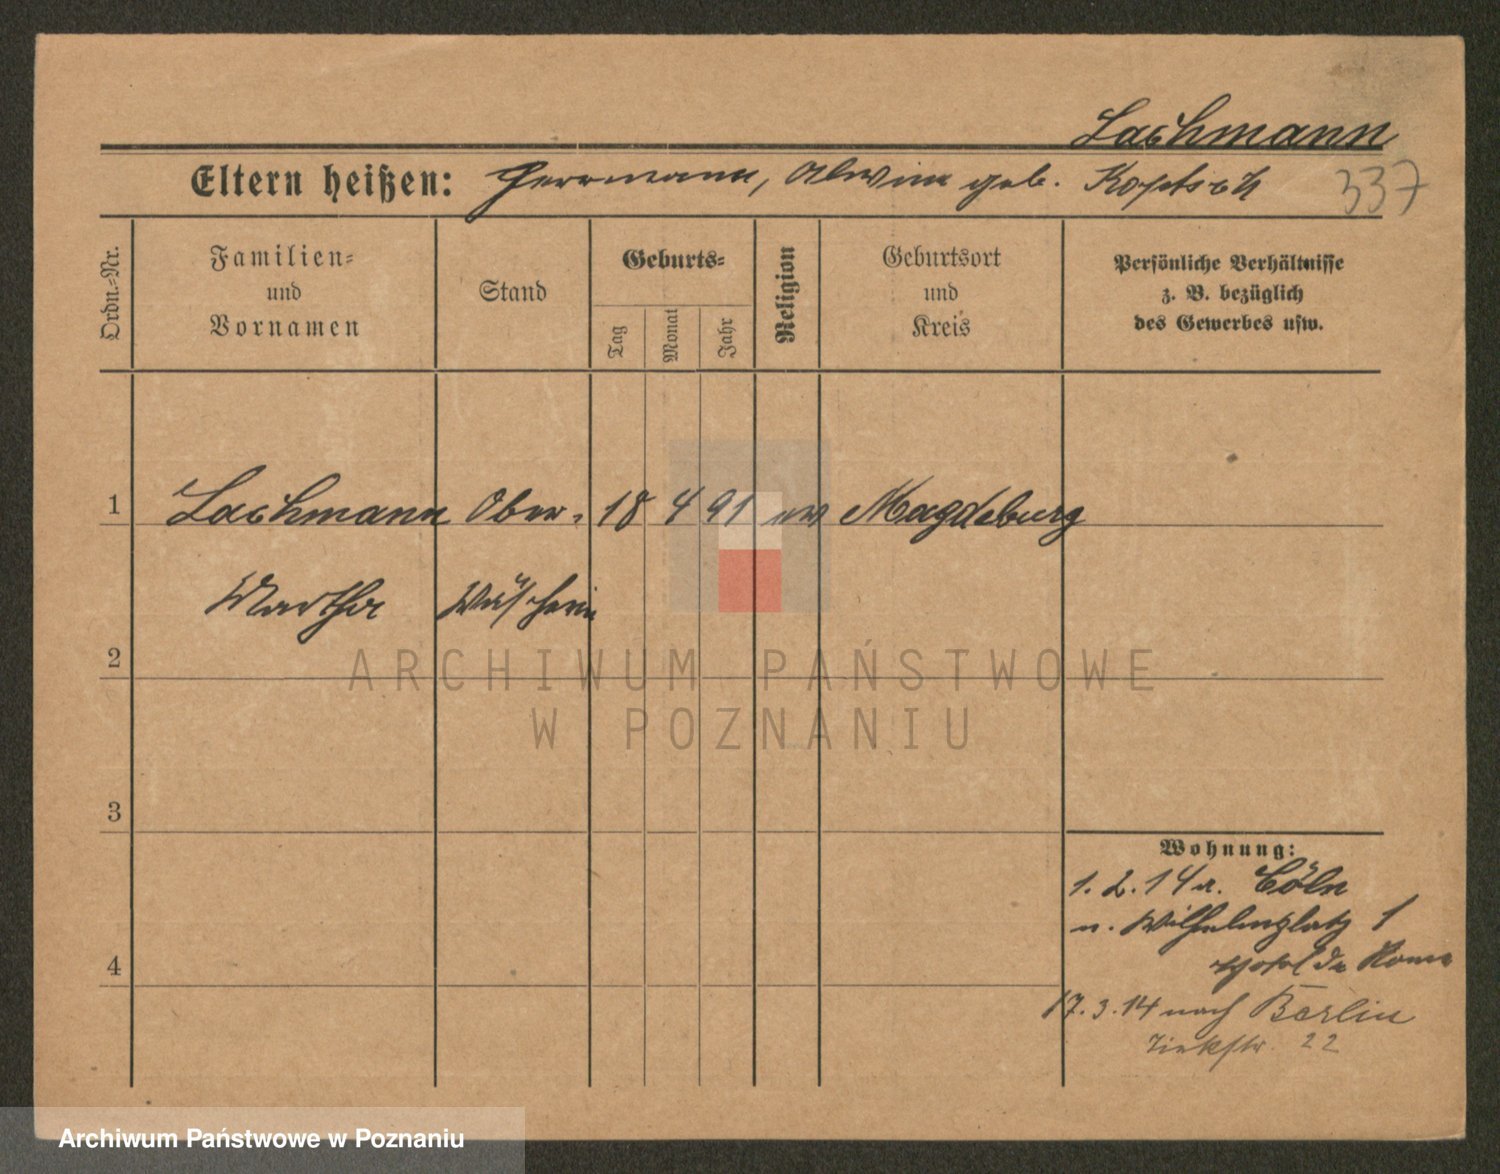 Lachmann
Eltern heißen: Herrmann, Alwine geb. Koptsch 337
Ordn.-Nr.
Familien-
und
Vornamen
Stand
Geburts-
Tag
Monat
Jahr
Religion
Geburtsort
und
Kreis
Persönliche Verhältnisse
z. B. bezüglich
des Gewerbes usw.
1 Lachmann Ober- 18 4 91 ev Magdeburg
Martha Wäscherin
2
ARCHIWUM PAŃSTWOWE
W POZNANIU
3
Wohnung:
1. 2. 14 a. Cöln
n. Wilhelmplatz 1
Hotel de Rome
4
17. 3. 14 nach Berlin
22
Archiwum Państwowe w Poznaniu